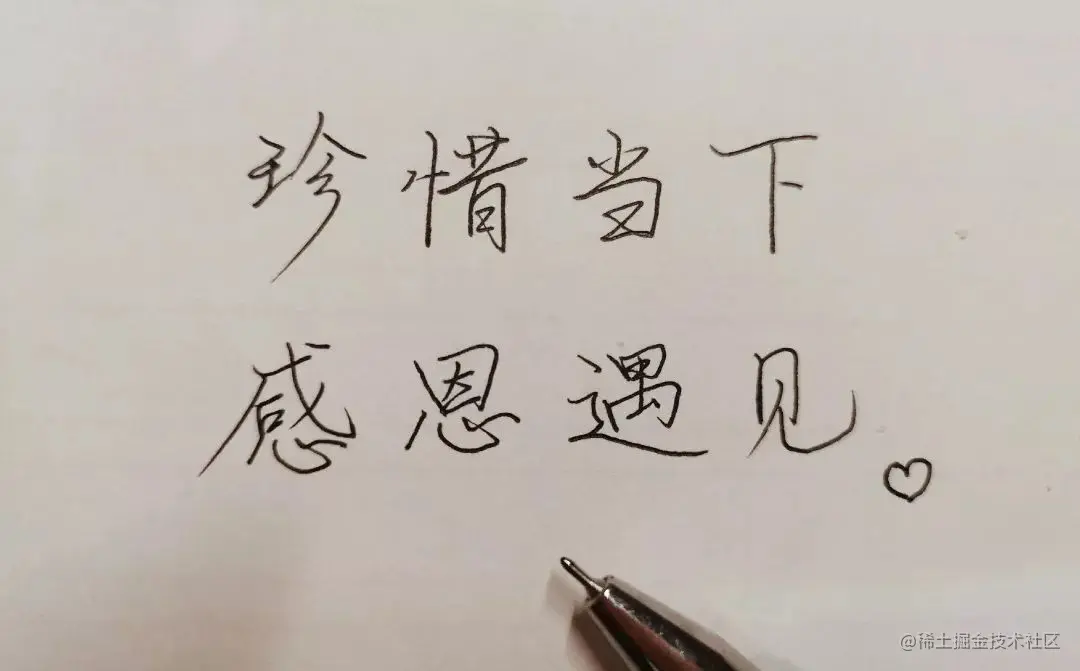 珍惜当下
感恩遇见
@稀土掘金技术社区